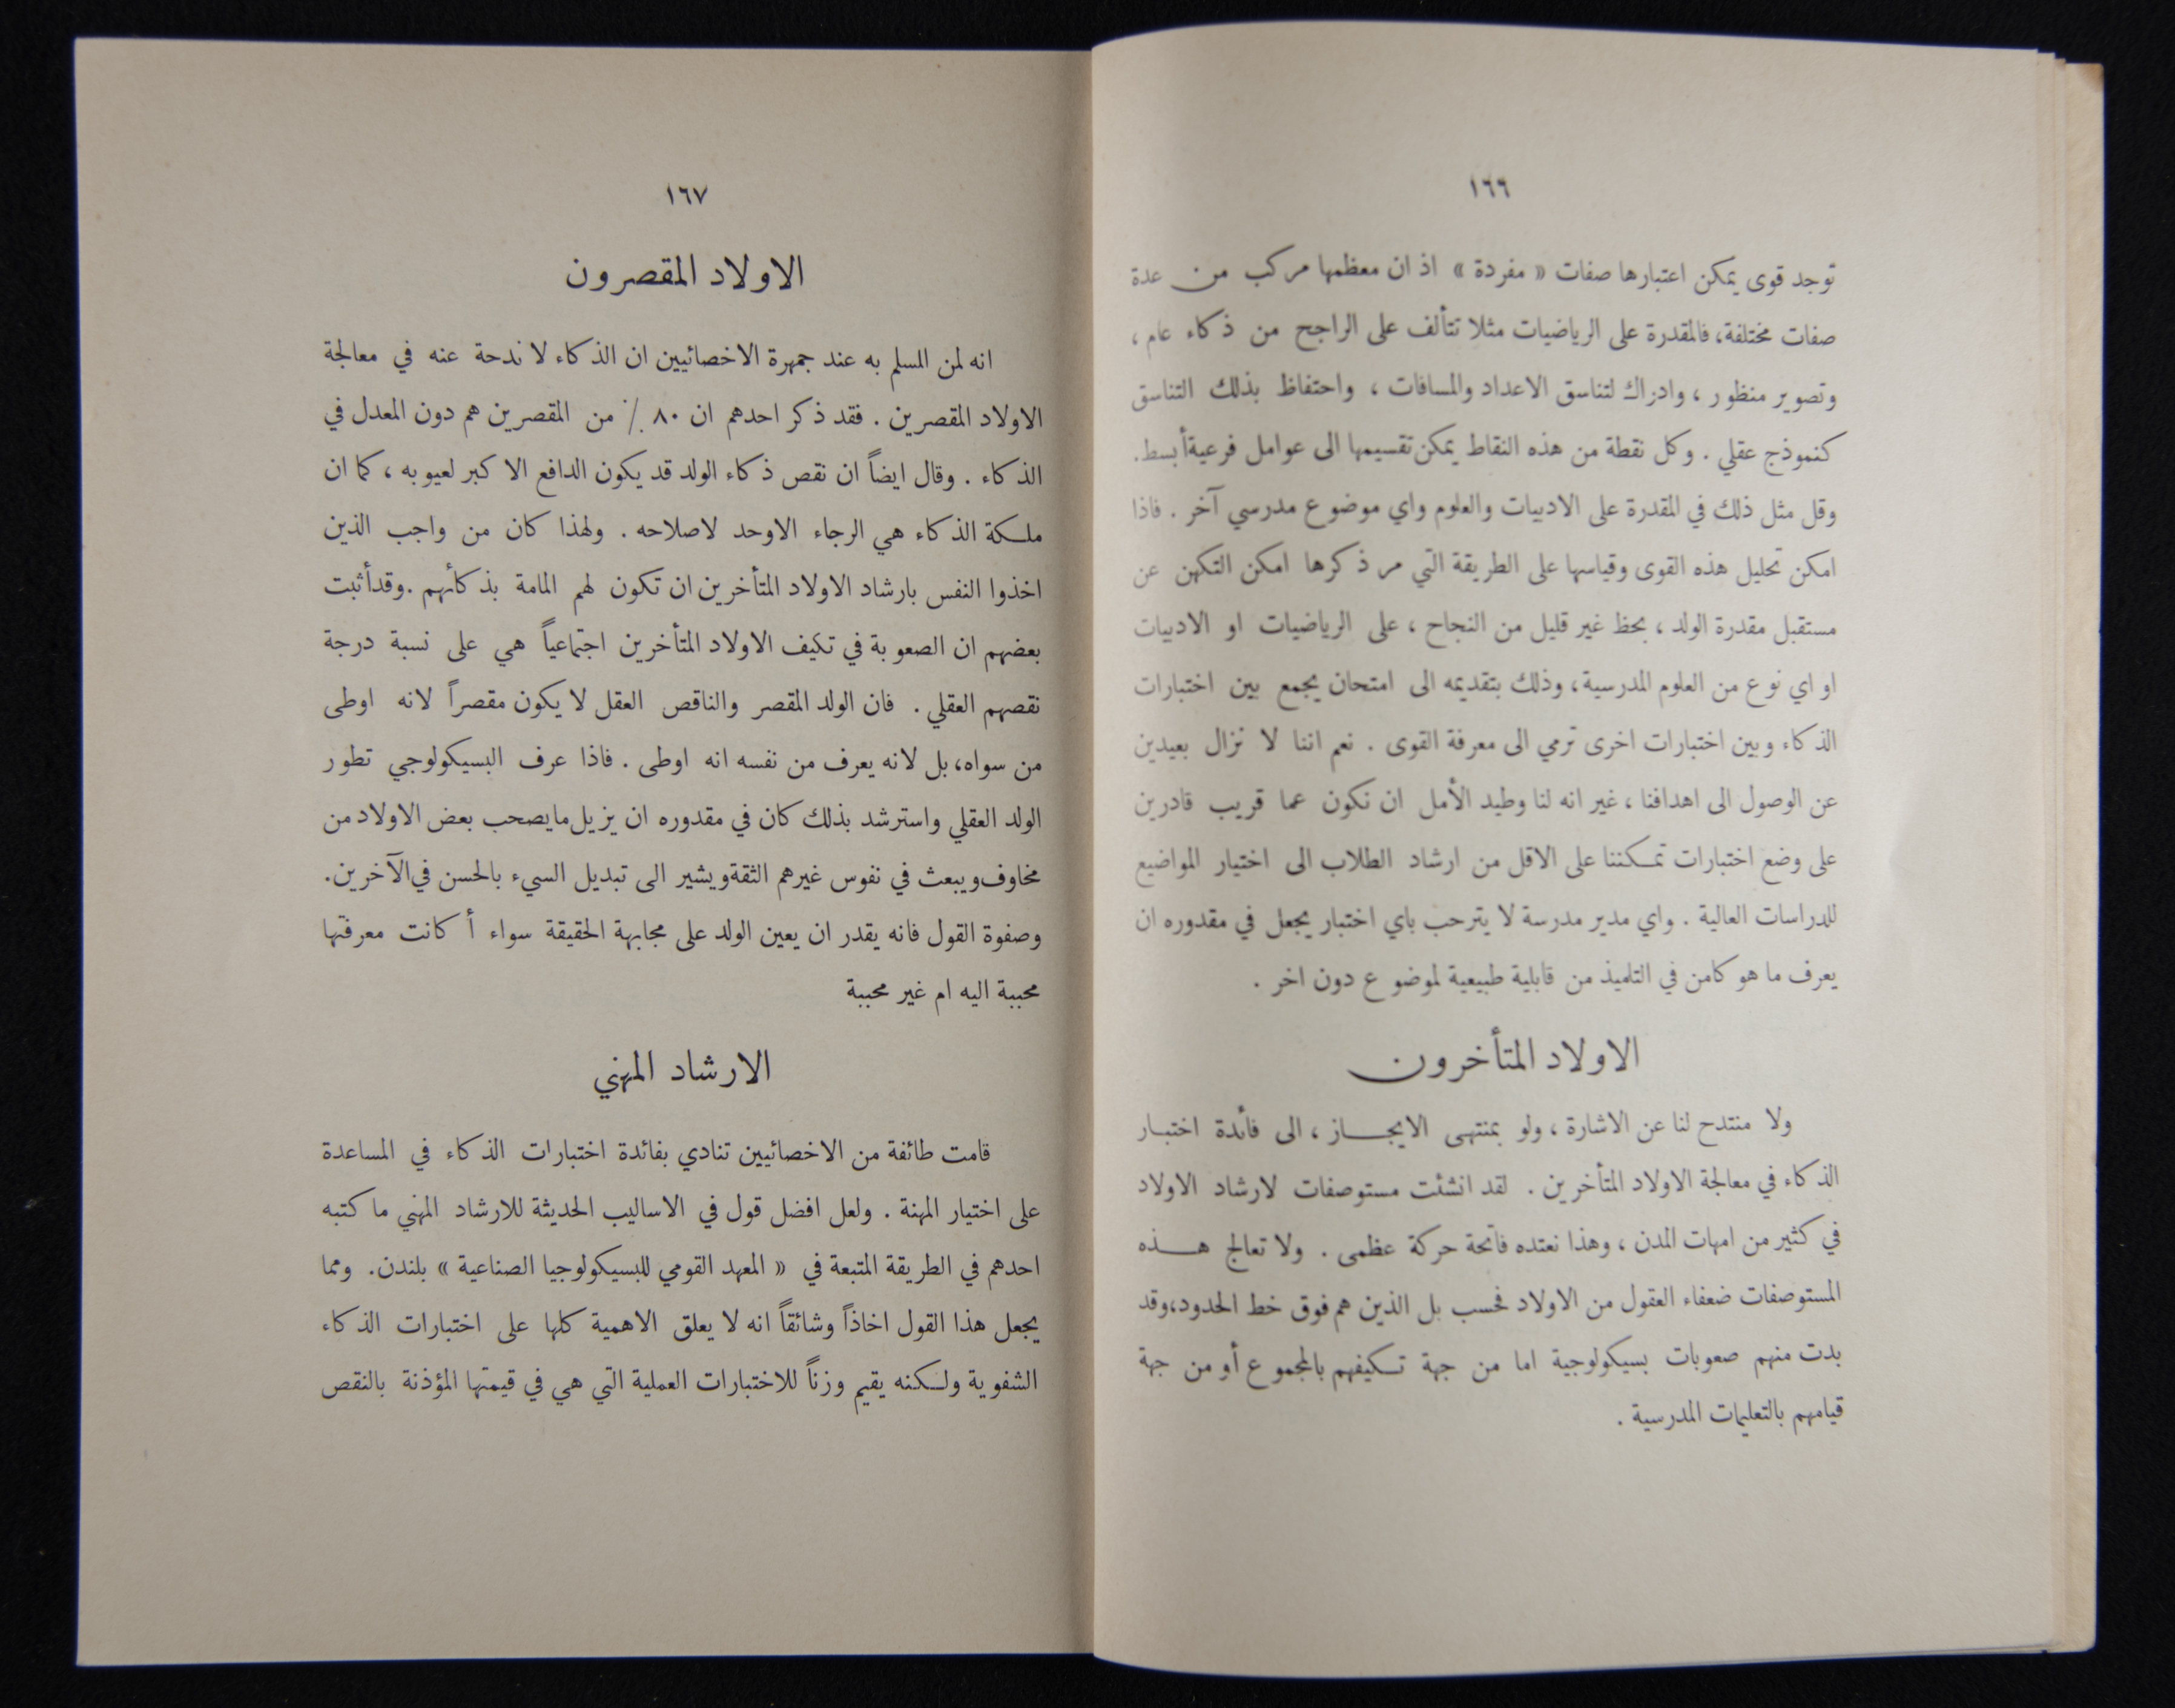 ١٦٦
توجد قوى يمكن اعتبارها صفات « مفردة » اذ ان معظمها مركب من عدة
صفات مختلفة، فالمقدرة على الرياضيات مثلا تتألف على الراجح من ذكاء عام ،
وتصوير منظور ، وادراك لتناسق الاعداد والمسافات ، واحتفاظ بذلك التناسق
كنموذج عقلي . وكل نقطة من هذه النقاط يمكن تقسيمها الى عوامل فرعية أبسط.
وقل مثل ذلك في المقدرة على الادبيات والعلوم واي موضوع مدرسي آخر . فاذا
امكن تحليل هذه القوى وقياسها على الطريقة التي مر ذكرها امكن التكهن عن
مستقبل مقدرة الولد ، بحظ غير قليل من النجاح ، على الرياضيات او الادبيات
او اي نوع من العلوم المدرسية ، وذلك بتقديمه الى امتحان يجمع بين اختبارات
الذكاء وبين اختبارات اخرى ترمي الى معرفة القوى . نعم اننا لا نزال بعيدين
عن الوصول الى اهدافنا ، غير انه لنا وطيد الأمل ان نكون عما قريب قادرين
على وضع اختبارات تمكننا على الاقل من ارشاد الطلاب الى اختيار المواضيع
للدراسات العالية . واي مدير مدرسة لا يترحب باي اختبار يجعل في مقدوره ان
يعرف ما هو كامن في التلميذ من قابلية طبيعية لموضوع دون اخر .
الاولاد المتأخرون
ولا منتدح لنا عن الاشارة ، ولو بمنتهى الايجاز ، الى فائدة اختبار
الذكاء في معالجة الاولاد المتأخرين . لقد انشئت مستوصفات لارشاد الاولاد
في كثير من امهات المدن ، وهذا نعتده فاتحة حركة عظمى . ولا تعالج هذه
المستوصفات ضعفاء العقول من الاولاد فحسب بل الذين هم فوق خط الحدود،وقد
بدت منهم صعوبات بسيكولوجية اما من جهة تكيفهم بالمجموع أو من جهة
قيامهم بالتعليمات المدرسية .
١٦٧
الاولاد المقصرون
انه لمن المسلم به عند جمهرة الاخصائيين ان الذكاء لا ندحة عنه في معالجة
الاولاد المقصرين . فقد ذكر احدهم ان ٨٠ ٪ من المقصرين هم دون المعدل في
الذكاء . وقال ايضاً ان نقص ذكاء الولد قد يكون الدافع الاكبر لعيوبه ، كما ان
ملكة الذكاء هي الرجاء الاوحد لاصلاحه . ولهذا كان من واجب الذين
اخذوا النفس بارشاد الاولاد المتأخرين ان تكون لهم المامة بذكائهم .وقد أثبت
بعضهم ان الصعوبة في تكيف الاولاد المتأخرين اجتماعياً هي على نسبة درجة
نقصهم العقلي . فان الولد المقصر والناقص العقل لا يكون مقصراً لانه اوطى
من سواه، بل لانه يعرف من نفسه انه اوطى . فاذا عرف البسيكولوجي تطور
الولد العقلي واسترشد بذلك كان في مقدوره ان يزيل ما يصحب بعض الاولاد من
مخاوف ويبعث في نفوس غيرهم الثقة ويشير الى تبديل السيء بالحسن في الآخرين.
وصفوة القول فانه يقدر ان يعين الولد على مجابهة الحقيقة سواء أ كانت معرفتها
محببة اليه ام غير محببة
الارشاد المهني
قامت طائفة من الاخصائيين تنادي بفائدة اختبارات الذكاء في المساعدة
على اختيار المهنة . ولعل افضل قول في الاساليب الحديثة للارشاد المهني ما كتبه
احدهم في الطريقة المتبعة في « المعهد القومي للبسيكولوجيا الصناعية » بلندن. ومما
يجعل هذا القول اخاذاً وشائقاً انه لا يعلق الاهمية كلها على اختبارات الذكاء
الشفوية ولكنه يقيم وزناً للاختبارات العملية التي هي في قيمتها المؤذنة بالنقص